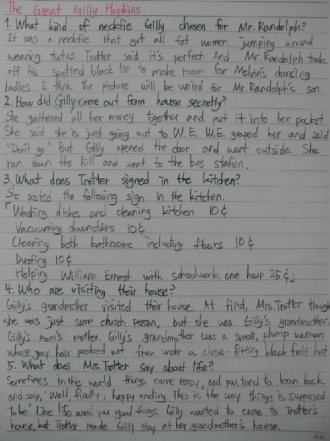 The Great Gilly Hopkins
1. What kind of necktie Gilly chosen for Mr. Randolph?
It was a necktie that got all fat women jumping around
wearing tutus. Trotter said it's perfect. And Mr. Randolph took
off his spotted black tie to make room for Melvin's dancing
ladies. I think the picture will be weird for Mr. Randolph's son.
2. How did Gilly come out from house secretly?
She gathered all her money together and put it into her pocket.
She said she is just going out to W. E. W.E. grabed her and said
"Don't go" But Gilly opened the door and went outside. She
ran down the hill and went to the bus station.
3. What does Trotter signed in the kitchen?
She posted the following sign in the kitchen.
「Washing dishes and cleaning kitchen 10¢
Vacuuming downstairs 10¢
Cleaning both bathrooms including floors 10¢
Dusting 10¢
Helping William Ernest with schoolwork. one hour 25¢」
4. Who are visiting their house?
Gilly's grandmother visited their house. At first, Mrs. Trotter though
she was just some church person, but she was Gilly's grandmother,
Gilly's mom's mother. Gilly's grandmother was a small, plump woman
whose gray hair peeked out from under a close-fitting black felt hat
5. What does Mrs. Trotter say about life?
Sometimes in this world things come easy, and you tend to lean back
and say, 'Well, finally, happy ending. This is the way things is supposed
to be.' Like life owed you good things. Gilly wanted to come to Trotter's
house, but Trotter made Gilly stay at her grandmother's house.